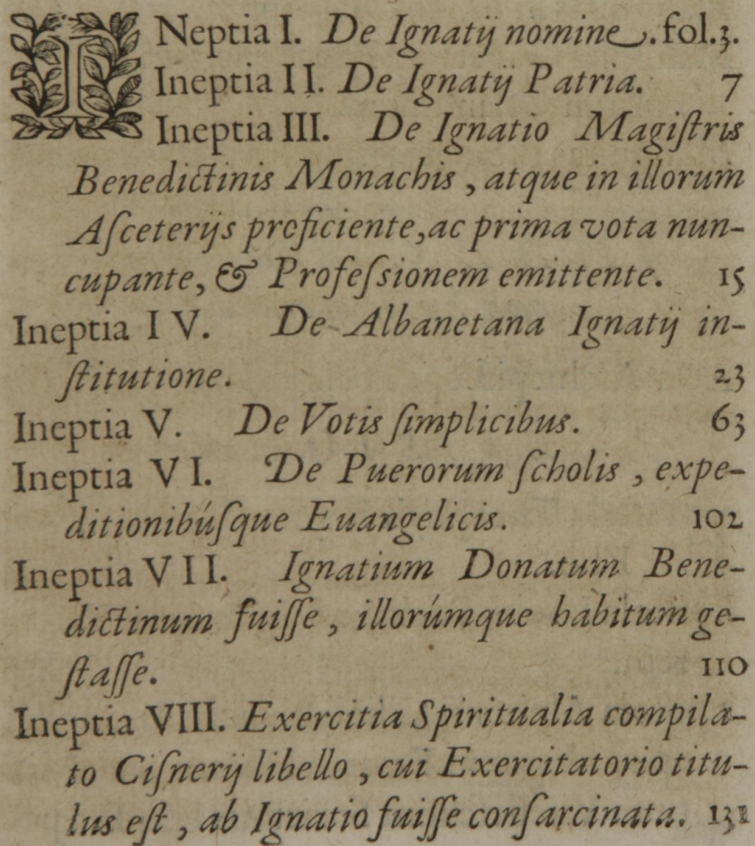 INeptia I. De Ignatij nomine. fol.3.
Ineptia II. De Ignatij Patria. 7
Ineptia III. De Ignatio Magiſtris
Benedictinis Monachis, atque in illorum
Aſceterijs proficiente, ac prima vota nun-
cupante, & Profeſsionem emittente. 15
Ineptia IV. De Albanetana Ignatij in-
ſtitutione. 23
Ineptia V. De Votis ſimplicibus. 63
Ineptia VI. De Puerorum ſcholis, expe-
ditionibúſque Euangelicis. 102
Ineptia VII. Ignatium Donatum Bene-
dictinum fuiſſe, illorúmque habitum ge-
ſtaſſe. 110
Ineptia VIII. Exercitia Spiritualia compila-
to Ciſnerij libello, cui Exercitatorio titu-
lus eſt, ab Ignatio fuiſſe conſarcinata. 131